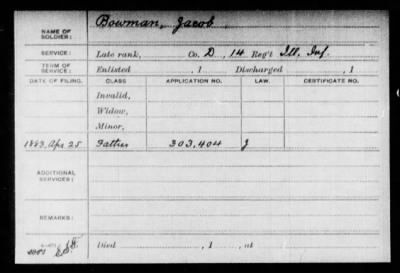 NAME OF SOLDIER: Bowman, Jacob
SERVICE: Late rank, Co. D, 14 Reg't Ill. Inf.
TERM OF SERVICE: Enlisted , 1 Discharged , 1
DATE OF FILING. CLASS APPLICATION NO. LAW. CERTIFICATE NO.
Invalid,
Widow,
Minor,
1883, Apr 25 Father 303,404 J
ADDITIONAL SERVICES:
REMARKS:
Died , 1 , at